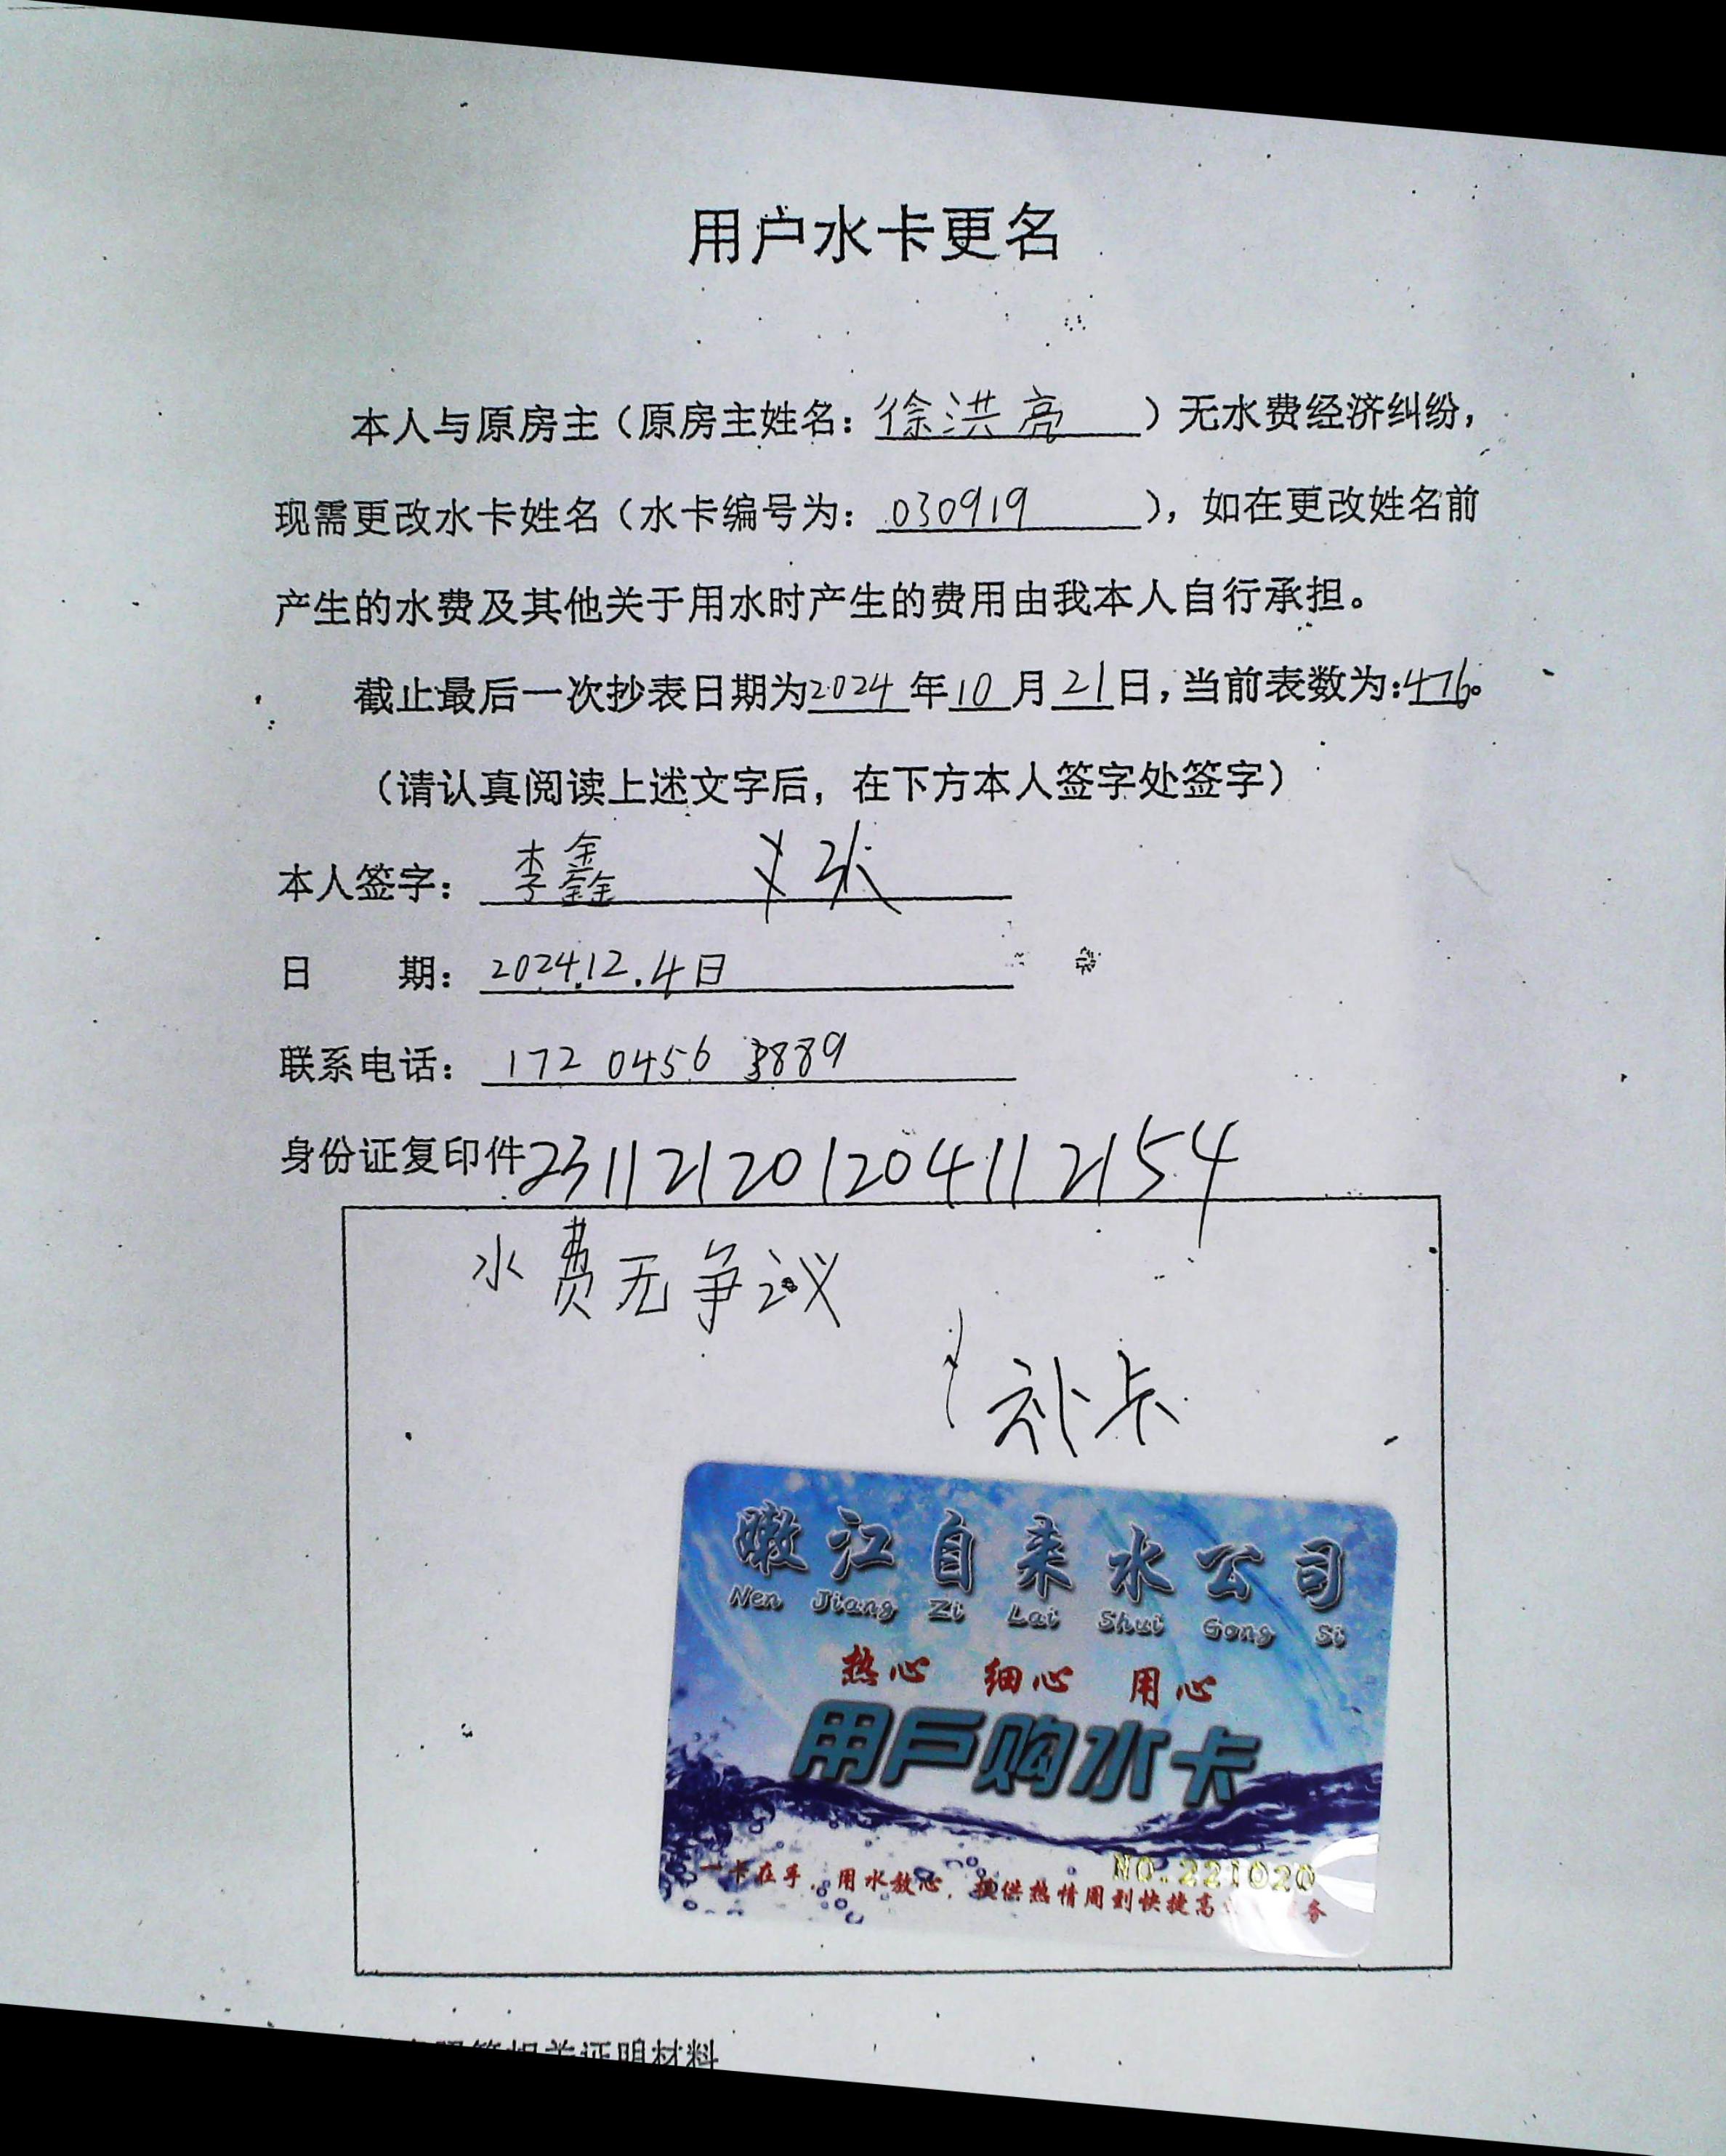 用户水卡更名
本人与原房主（原房主姓名：徐洪亮）无水费经济纠纷，
现需更改水卡姓名（水卡编号为：030919），如在更改姓名前
产生的水费及其他关于用水时产生的费用由我本人自行承担。
截止最后一次抄表日期为2024年10月21日，当前表数为：476。
（请认真阅读上述文字后，在下方本人签字处签字）
本人签字：李鑫
日 期：2024.12.4日
联系电话：172 0456 3889
身份证复印件231121201204112154
水费无争议
补卡
嫩江自来水公司
Nen Jiang Zi Lai Shui Gong Si
热心 细心 用心
用户购水卡
NO.221020
一卡在手，用水放心，提供热情周到快捷高 务
相关证明材料